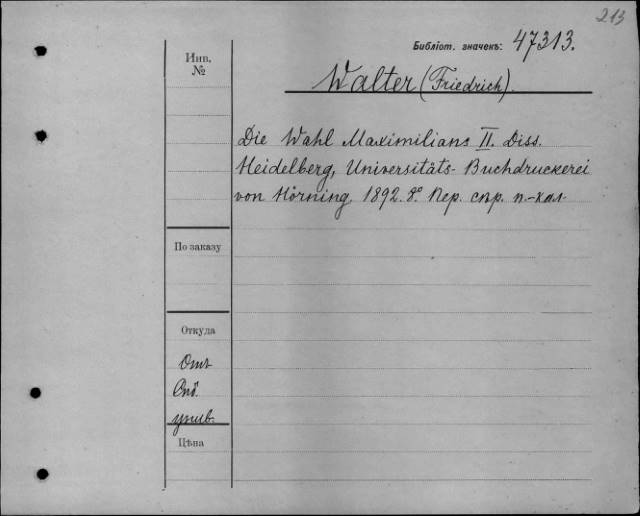 213
Библіот. значекъ: 47313.
Инв.
№
Walter (Friedrich).
Die Wahl Maximilians II. Diss.
Heidelberg, Universitäts-Buchdruckerei
von Hörning, 1892. 8°. Пер. скр. п.-кал.
По заказу
Откуда
Отъ
Спб.
унив.
Цѣна